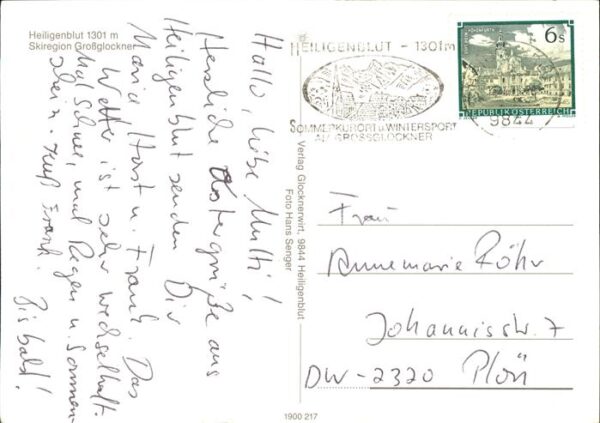 Heiligenblut 1301 m
Skiregion Großglockner
Hallo, liebe Mutti!
Herzliche Ostergrüße aus
Heiligenblut senden Dir
Maria, Horst u. Frank. Das
Wetter ist sehr wechselhaft.
Mal Schnee, mal Regen u. Sonnen-
schein. Gruß Frank.
Bis bald!
Verlag Glocknerwirt, 9844 Heiligenblut
Foto Hans Senger
HEILIGENBLUT - 1301m
SOMMERKURORT u. WINTERSPORT
AM GROSSGLOCKNER
9844
6s
REPUBLIK ÖSTERREICH
Frau
Annemarie Röhr
Johannisstr. 7
DW-2320 Plön
1900 217